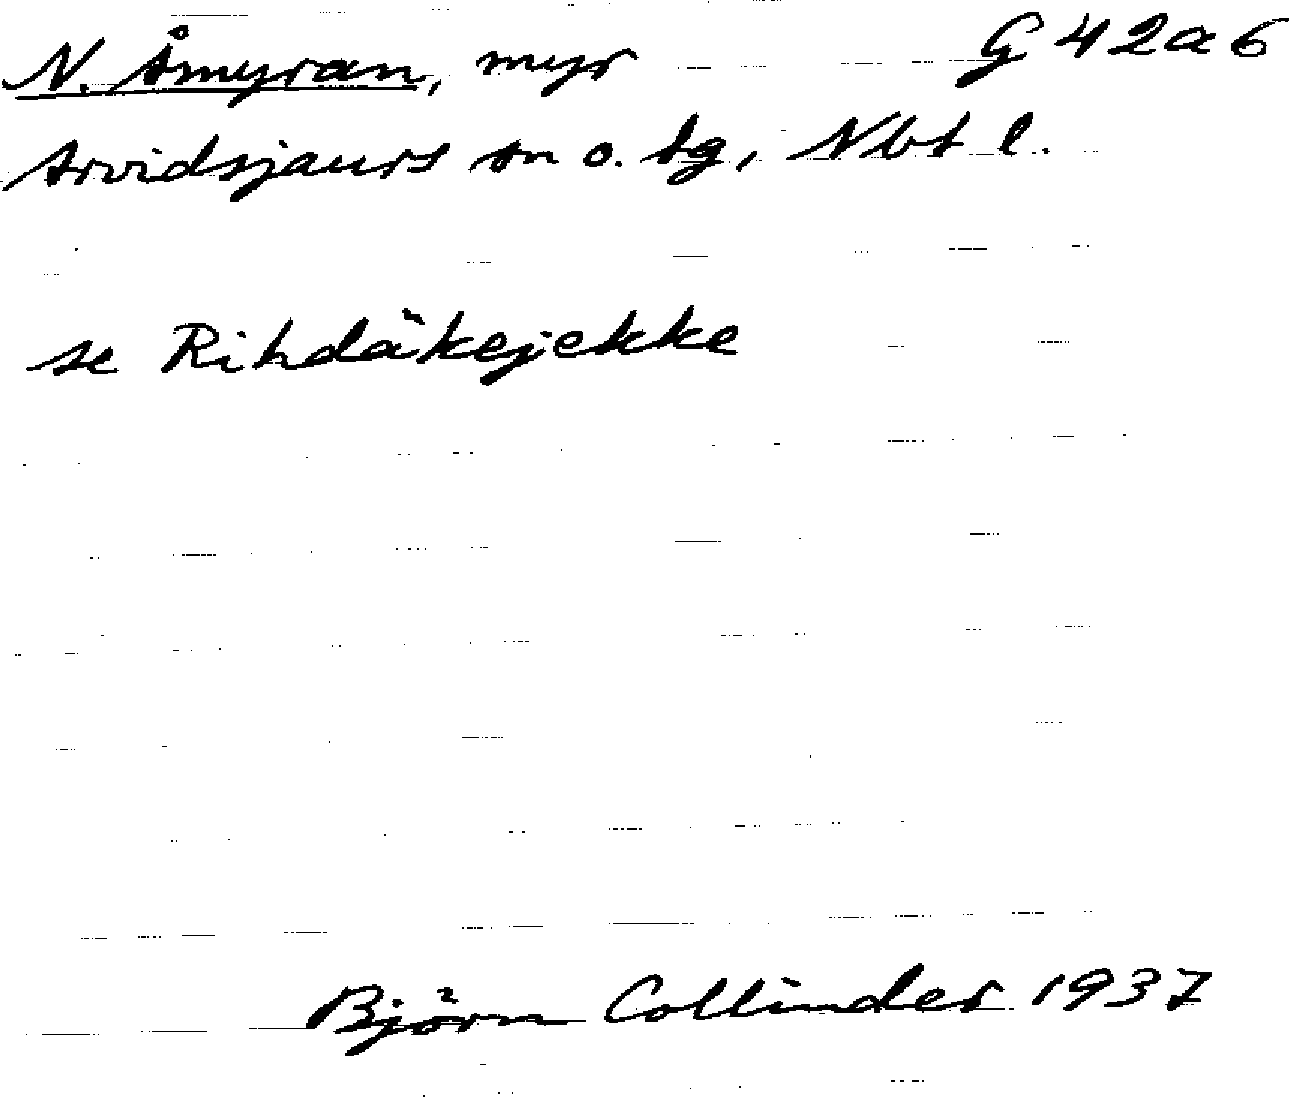 N. Åmyran, myr G 42a6
Arvidsjaurs sn o. tg, Nbt l.
se Rihdäkejekke
Björn Collinder 1937